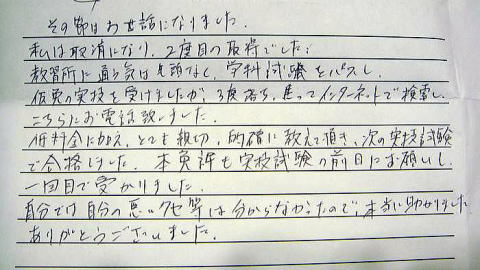 その節はお世話になりました.
私は取消になり、2度目の取得でした.
教習所に通う気は毛頭なく、学科試験をパスし、
仮免の実技を受けましたが、3度落ち、焦ってインターネットで検索し、
こちらにお電話致しました.
低料金に加え、とても親切、的確に教えて頂き、次の実技試験
で合格しました. 本免許も実技試験の前日にお願いし、
一回目で受かりました.
自分では自分の悪いクセ等は分からなかったので、本当に助かりました
ありがとうございました.